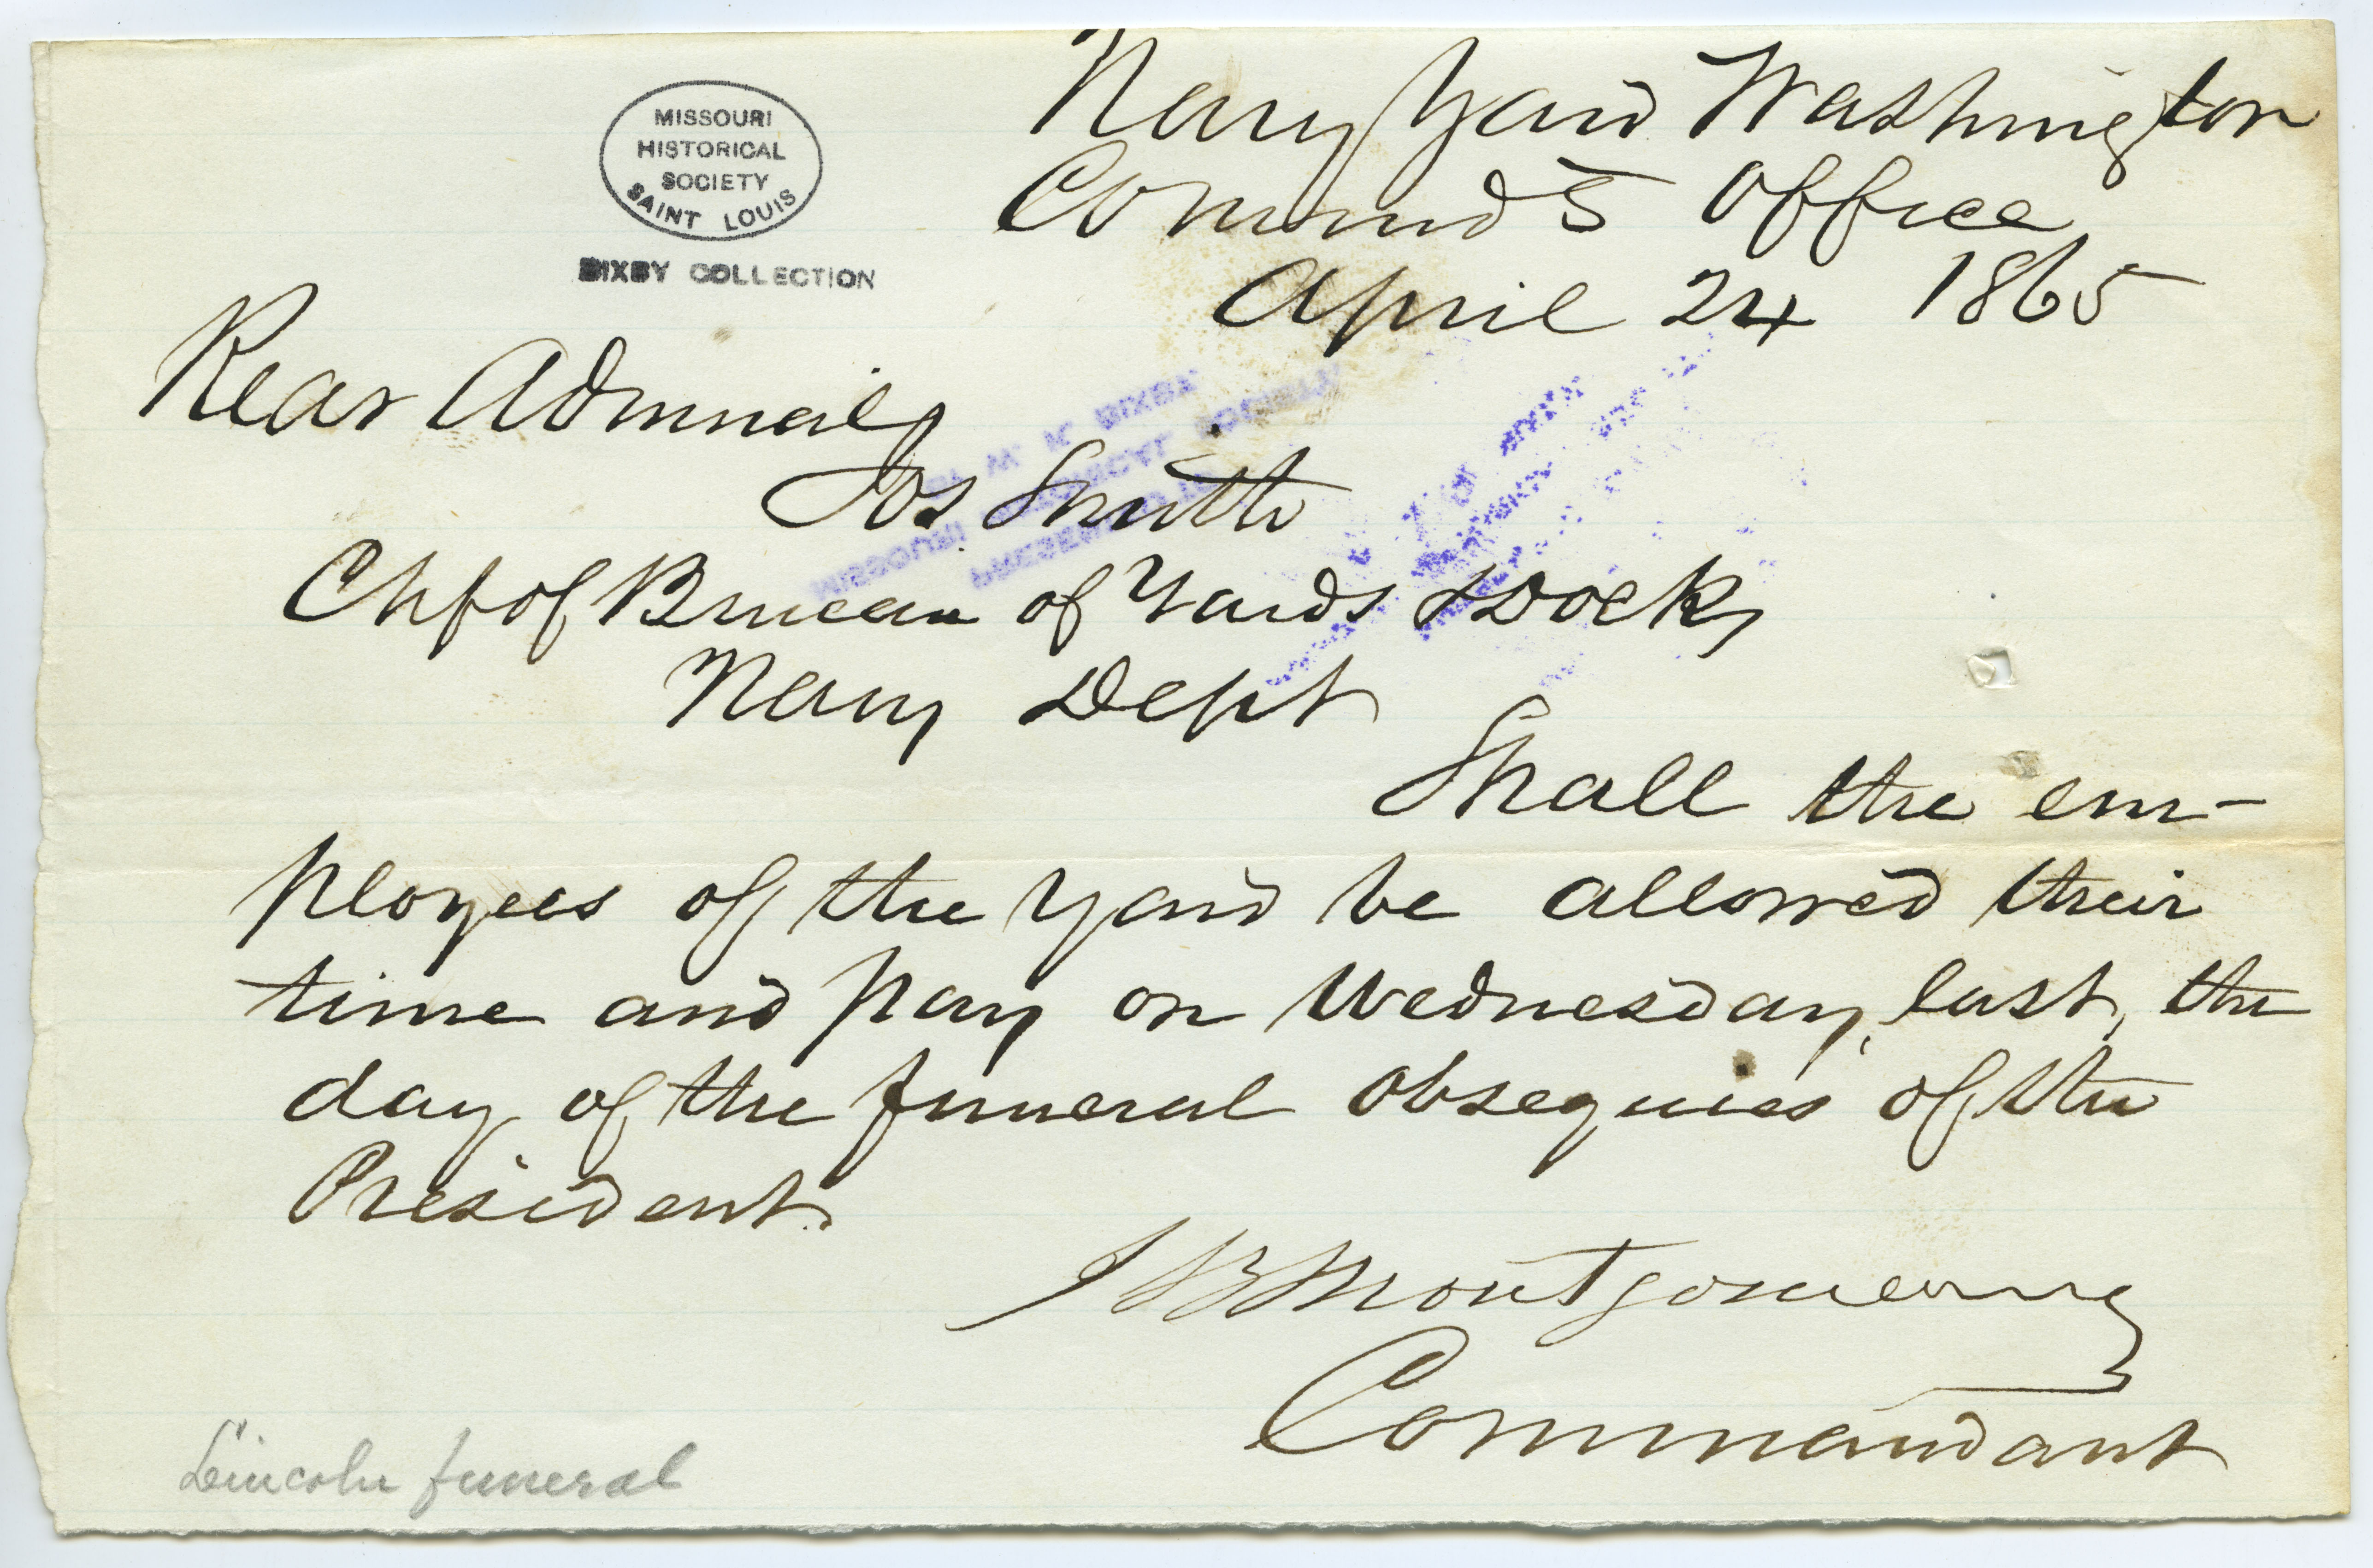 Navy Yard Washington
Commdts Office
April 24 1865
MISSOURI
HISTORICAL
SOCIETY
SAINT LOUIS
BIXBY COLLECTION
Rear Admiral
Jos Smith
Chf of Bureau of Yards & Docks
Navy Dept
Shall the em-
ployees of the Yard be allowed their
time and pay on Wednesday, last, the
day of the funeral obsequies of the
President.
J B Montgomery
Commandant
Lincoln funeral